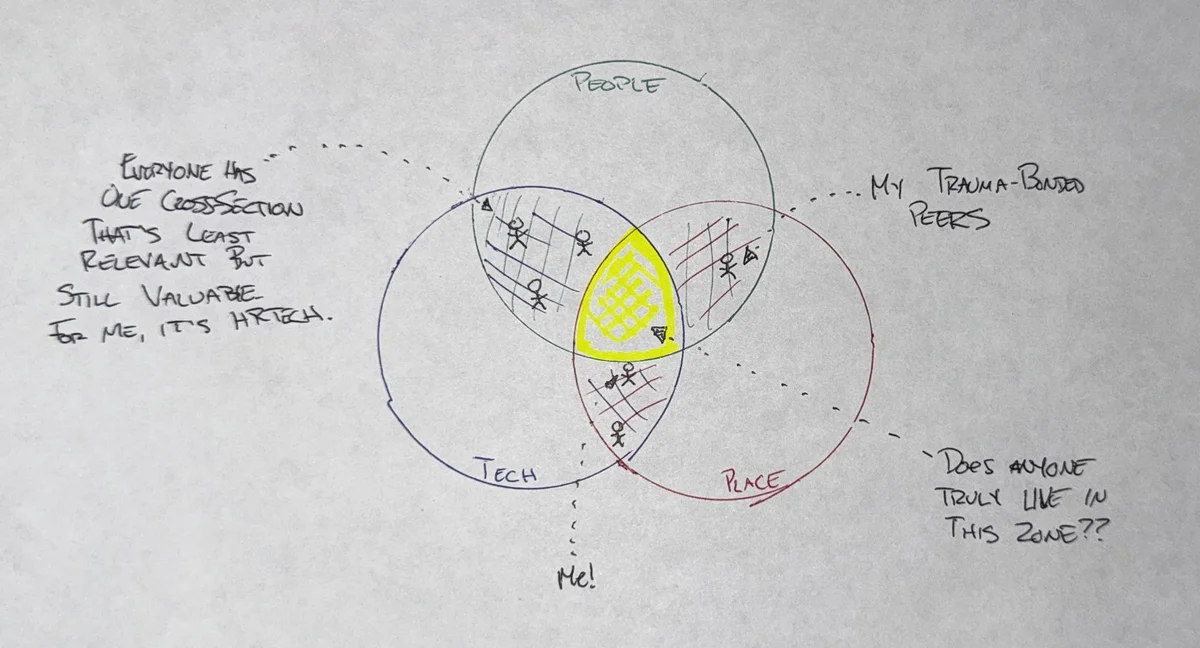 PEOPLE
EVERYONE HAS
ONE CROSS-SECTION
THAT'S LEAST
RELEVANT BUT
STILL VALUABLE
FOR ME, IT'S HRTECH.
MY TRAUMA-BONDED
PEERS
TECH
PLACE
DOES ANYONE
TRULY LIVE IN
THIS ZONE??
Me!